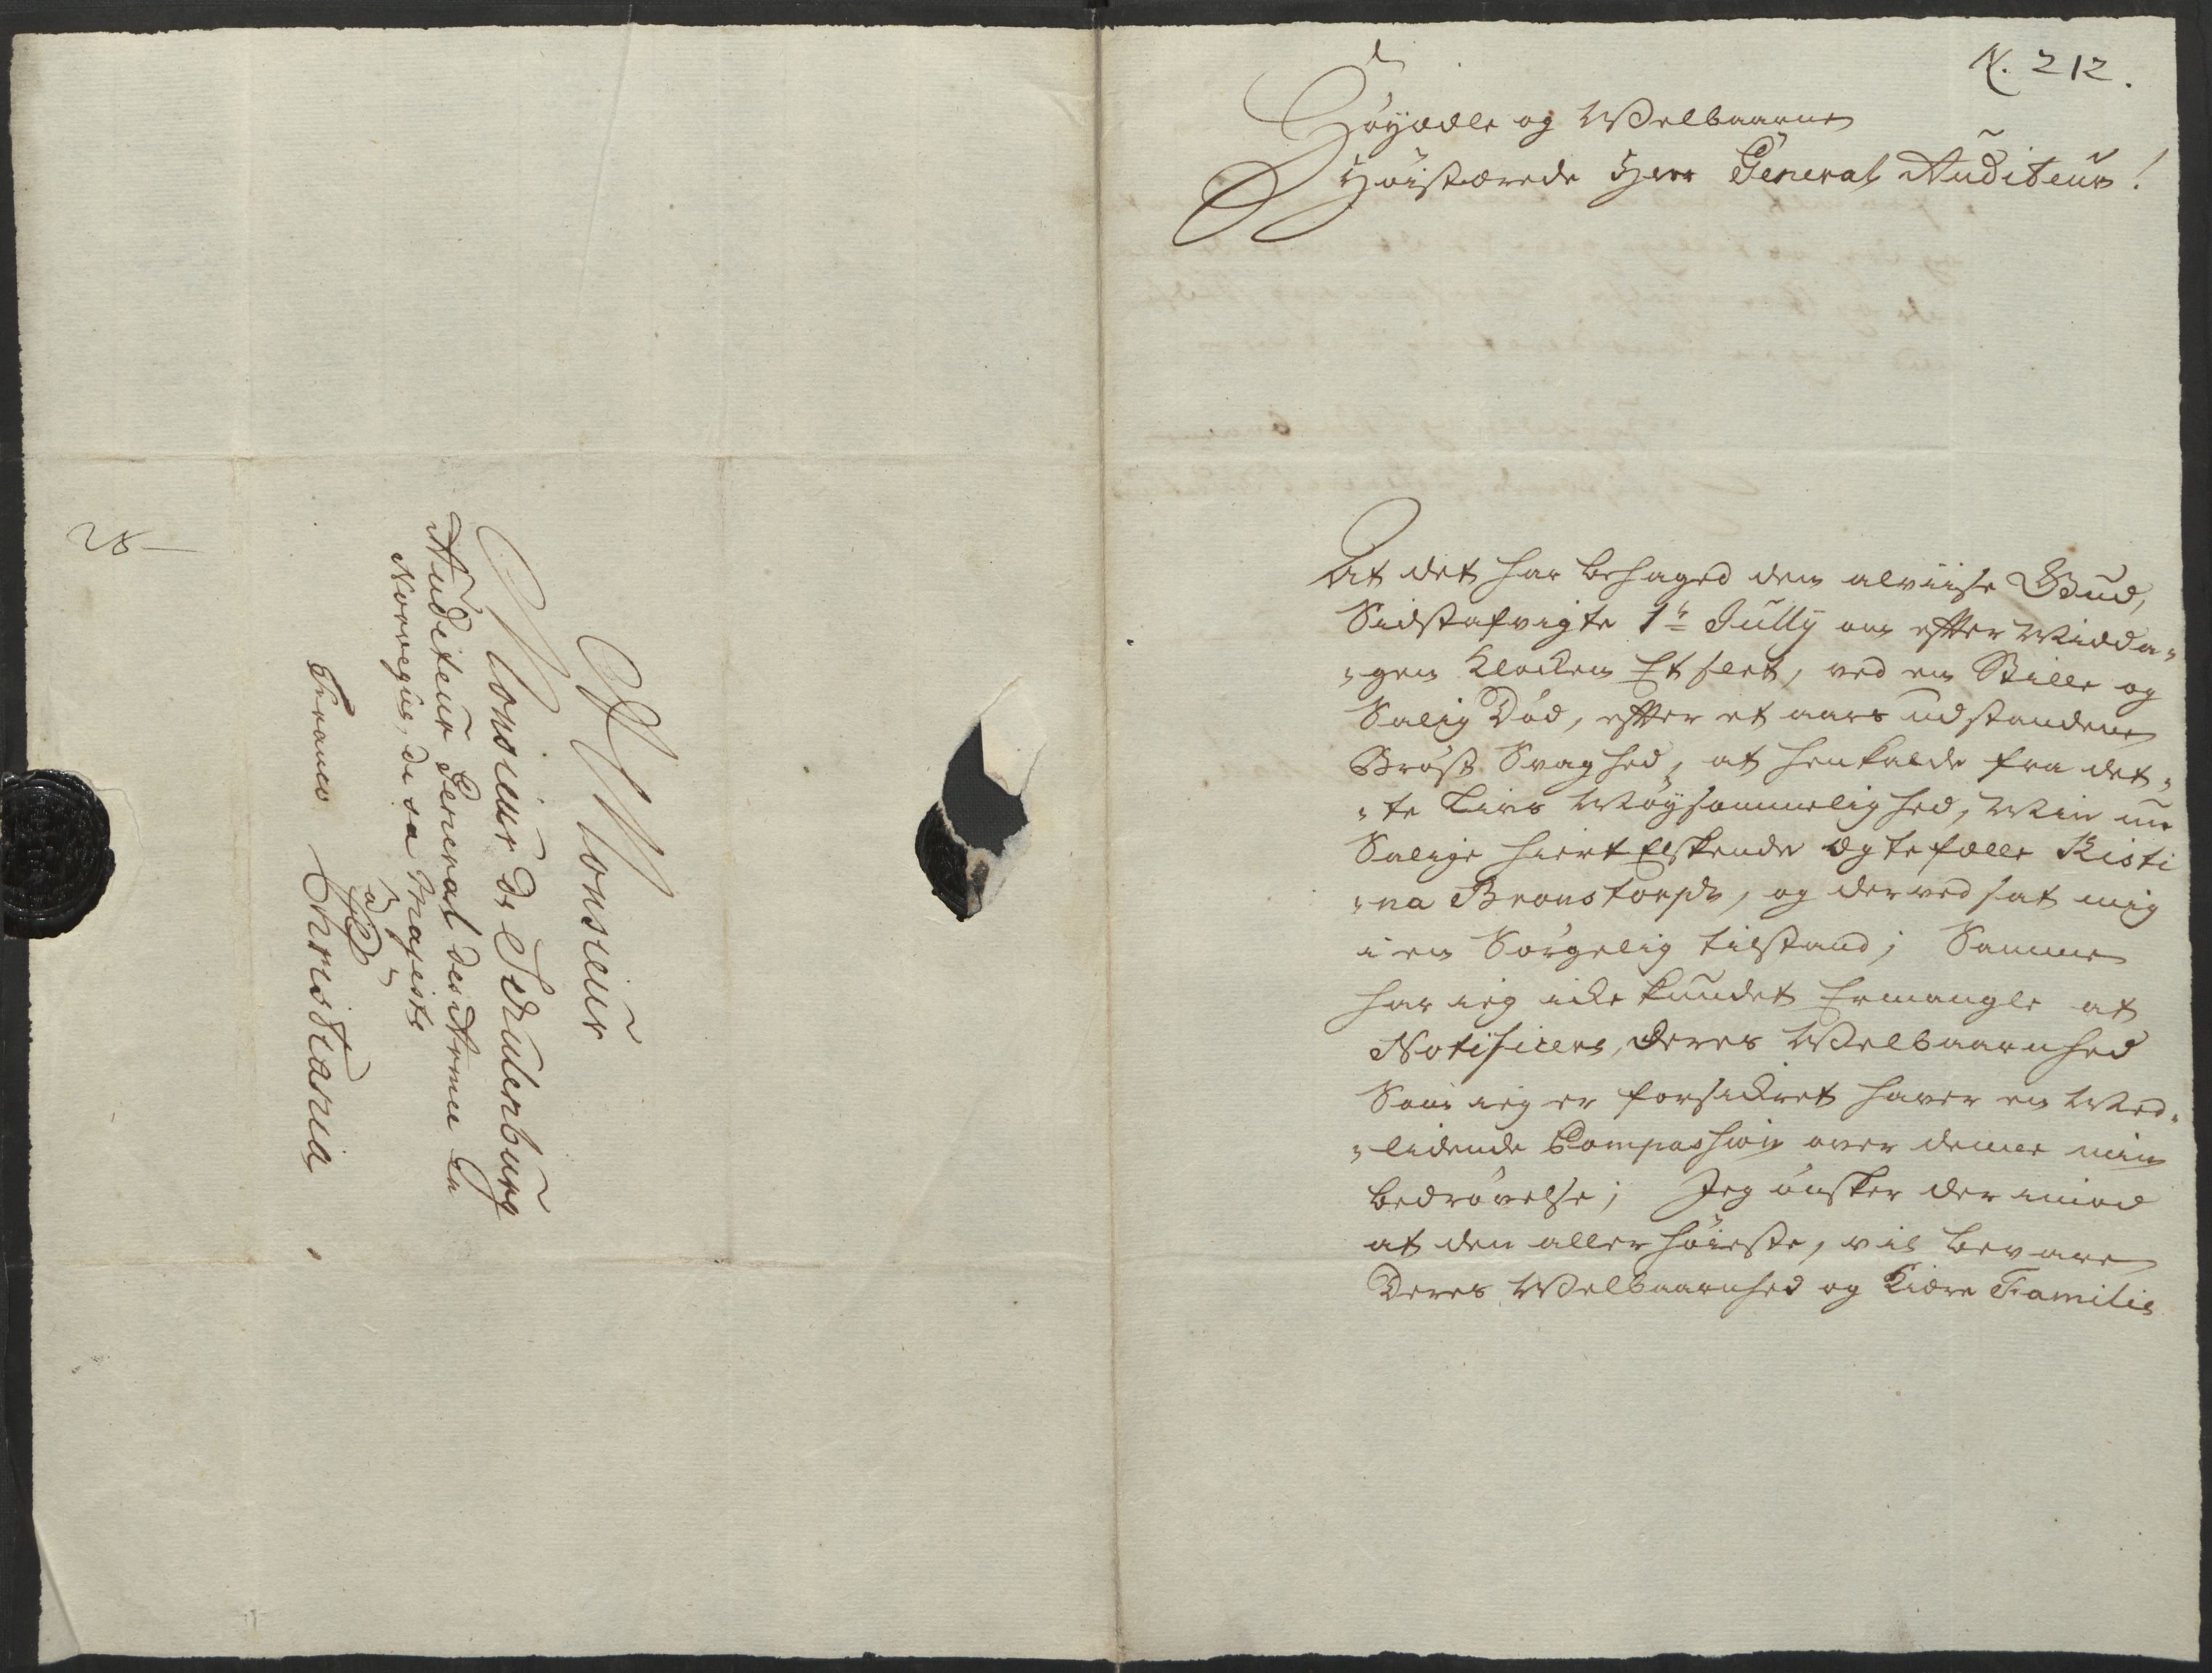 28 —
Monsieur
Monsieur de Schulenburg
Auditeur General des Armee en
Norvegue, de sa Majeste
à
Franco Christiania
N. 212.
Höyædle og Welbaarne
Höistærede Herr General Auditeur!
At det har behaged den alviise Gud,
Sidstafvigte 1te Jully om efter Midda-
-gen Klocken Et slet, ved en Stille og
Salig Död, efter et aars udstandene
Bröst Svaghed, at henkalde fra det-
-te Livs Möysommelighed, Min nu
Salige hiertElskende Ægtefælle Kisti
-na Bronstorph, og derved sat mig
i en Sörgelig tilstand; Samme
har ieg icke kundet Ermangle at
Notificere, Deres Welbaarnhed
Som ieg er forsickret haver en Med-
-lidende Compassion over denne min
bedrövelse; Jeg önsker der imod
at den aller höieste, vil bevare
Deres Welbaarnhed og Kiære Familie